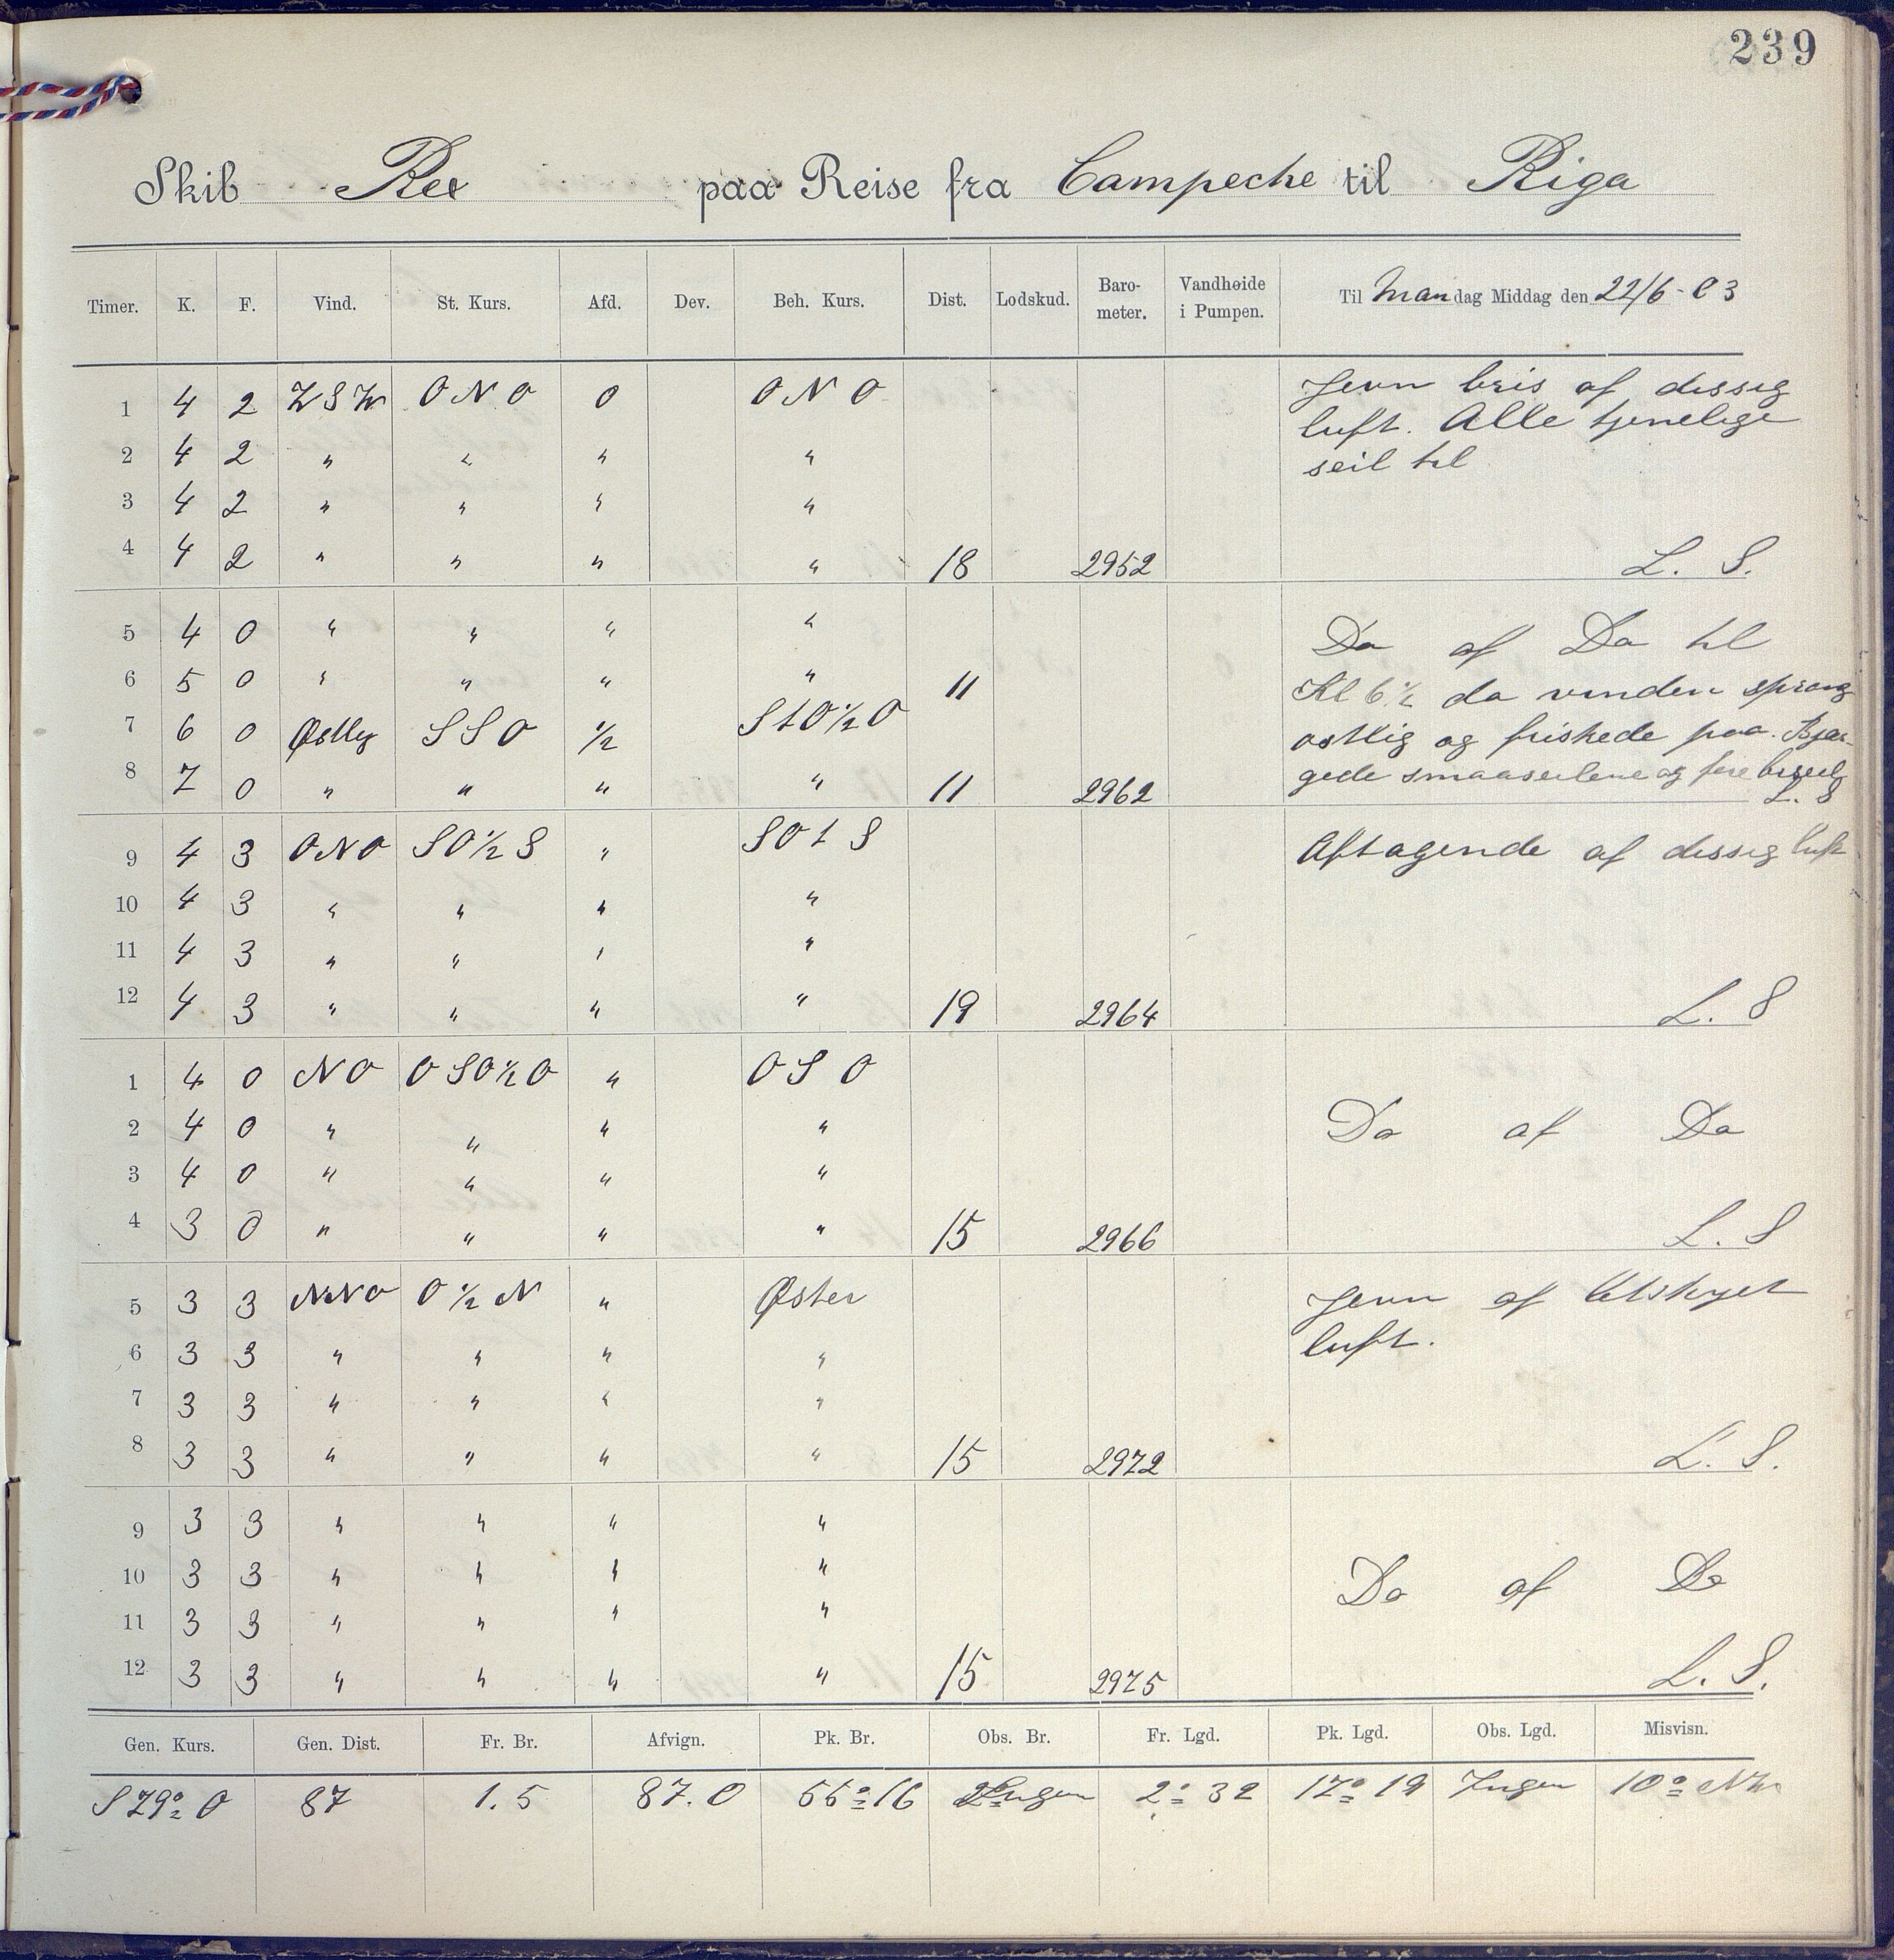 239
Skib Rex paa Reise fra Campeche til Riga
Timer. K. F. Vind. St. Kurs. Afd. Dev. Beh. Kurs. Dist. Lodskud. Baro-meter. Vandhøide i Pumpen. Til Mandag Middag den 22/6-03
1 4 2 WSW ONO 0 ONO Jevn bris af dissig
luft. Alle tjenelige
2 4 2 " " " " seil til
3 4 2 " " " "
4 4 2 " " " " 18 2952 L. S.
5 4 0 " " " " Do af Do til
6 5 0 " " " " 11 Kl 6 1/2 da vinden sprang
7 6 0 Østlig SSO 1/2 StO 1/2 O ostlig og friskede paa. Bjær-
8 7 0 " " " " 11 2962 gede smaaseilene og
L. S
9 4 3 ONO SO 1/2 S " SO t S Aftagende af dissig luft
10 4 3 " " " "
11 4 3 " " " "
12 4 3 " " " " 19 2964 L. S
1 4 0 NO OSO 1/2 O " OSO
2 4 0 " " " " Do af Do
3 4 0 " " " "
4 3 0 " " " " 15 2966 L. S
5 3 3 NNO O 1/2 N " Øster Jevn af letskyet
6 3 3 " " " " luft.
7 3 3 " " " "
8 3 3 " " " " 15 2972 L. S.
9 3 3 " " " "
10 3 3 " " " " Do af Do
11 3 3 " " " "
12 3 3 " " " " 15 2975 L. S.
Gen. Kurs. Gen. Dist. Fr. Br. Afvign. Pk. Br. Obs. Br. Fr. Lgd. Pk. Lgd. Obs. Lgd. Misvisn.
S 79° O 87 1.5 87.0 56° 16 Ingen 2° 32 17° 19 Ingen 10° NW